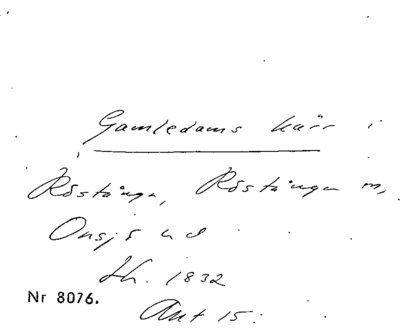 Gamledams kärr i
Röstånga, Röstånga m,
Onsjö hd
Sk. 1832
Nr 8076.
Akt 15.